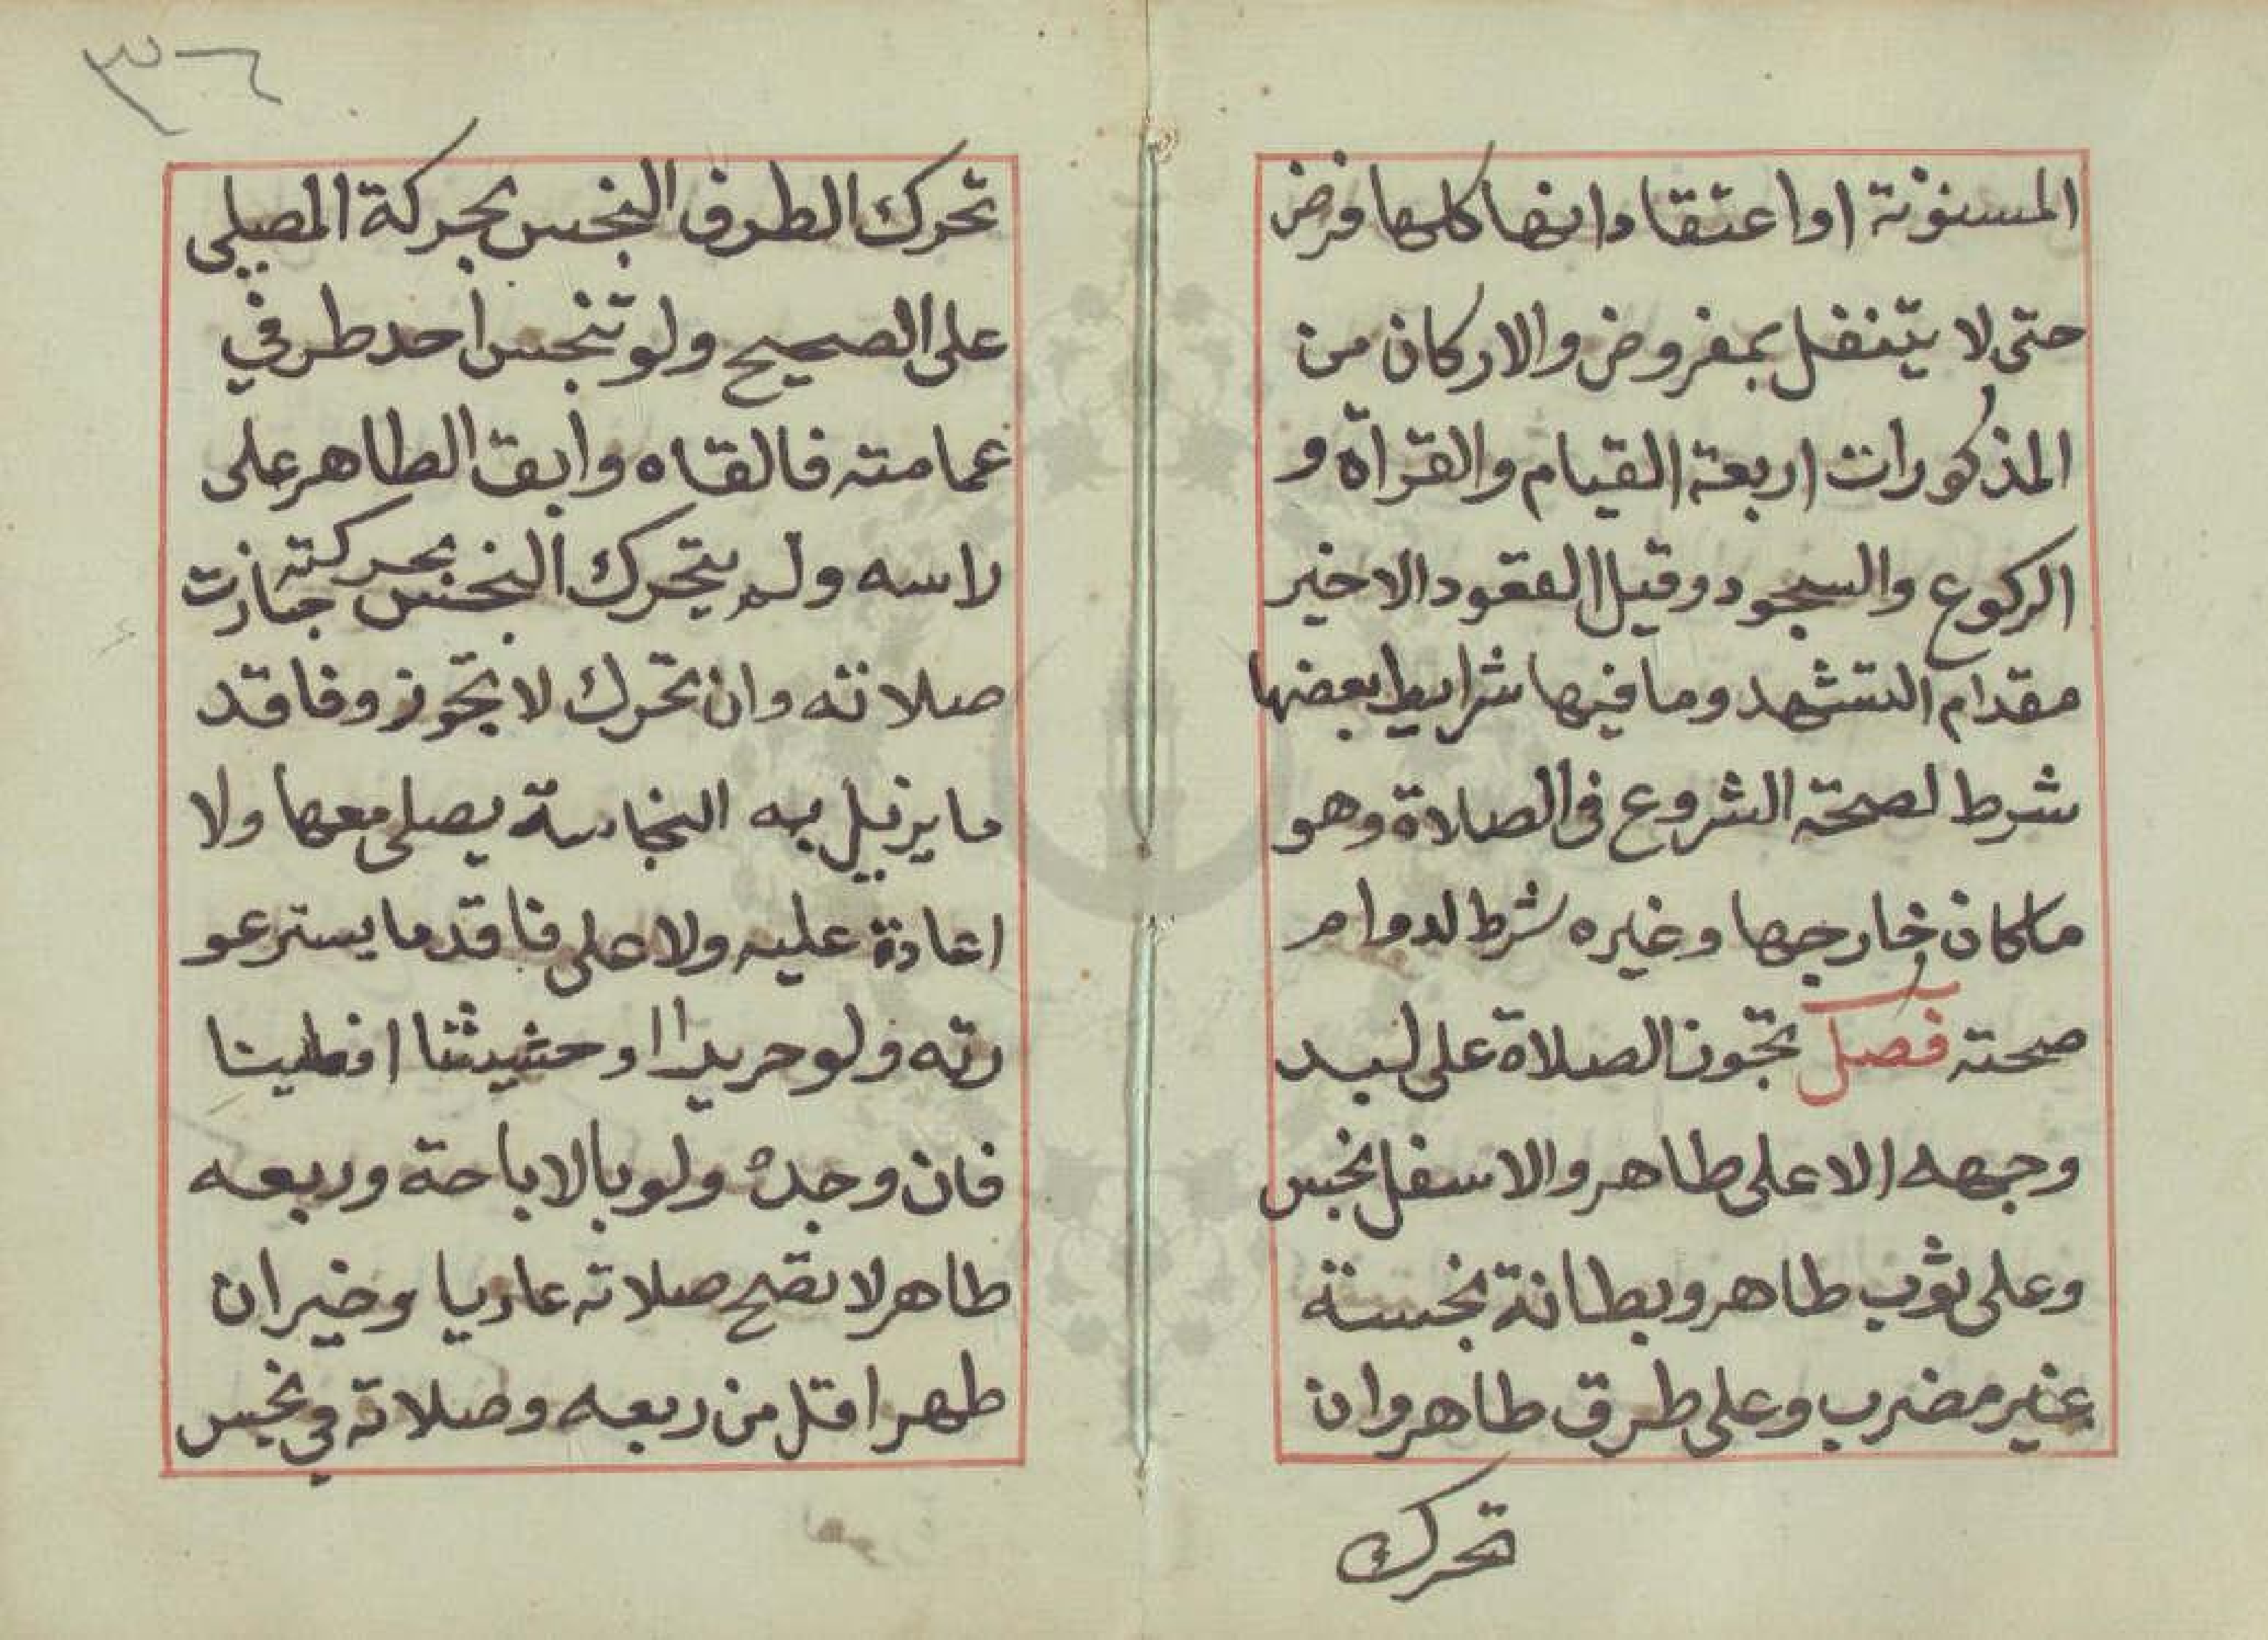 المسنونة او اعتقاد انها كلها فرض
حتى لا يتنفل بمفروض والاركان من
المذكورات اربعة القيام والقرآة و
الركوع والسجود وقيل القعود الاخير
مقدام التشهد وما فيها شرايط بعضها
شرط لصحة الشروع فى الصلاة وهو
ماكان خارجها وغيره شرط لدوام
صحته فصل تجوز الصلاة على لبد
وجهه الاعلى طاهر والاسفل نجس
وعلى ثوب طاهر وبطانة نجسة
غير مضرب وعلى طرق طاهر وان
تحرك
٣٦
تحرك الطرف النجس بحركة المصلي
على الصحيح ولو تنجس احد طرفي
عمامته فالقاه وابق الطاهر على
راسه ولم يتحرك النجس بحركته جازت
صلاته وان تحرك لا تجوز وفاقد
ما يزيل به النجاسة يصلي معها ولا
اعادة عليه ولا على فاقد ما يستر عو
رته ولو حريرا او حشيشا او طينا
فان وجده ولو بالاباحة وربعه
طاهر لا تصح صلاته عاريا وخير ان
طهر اقل من ربعه وصلاته في نجس